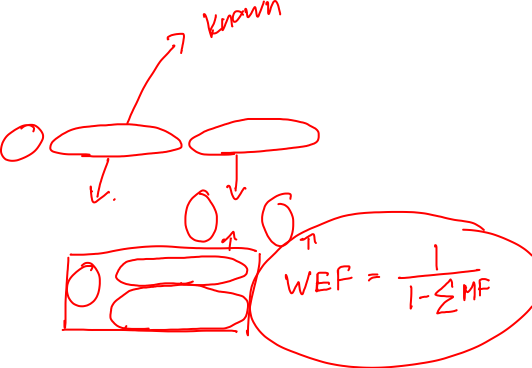 Known
WEF = 1 / (1 - ∑ MF)